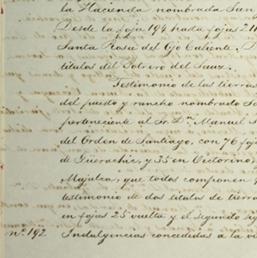 la Hacienda nombrada San
Desde la foja 194 hasta fojas 211
Santa Rosa del Ojo Caliente.
titulos del Potrero del Sauz.
Testimonio de las tierras
del puesto y rancho nombrado
perteneciente al Sr. Dn. Manuel
del Orden de Santiago, con 76 foj
de Guerachic, y 35 en Victorino,
Majalca, que todos componen
testimonio de dos titulos de tierra
en fojas 25 vuelta y el segundo
nº 192 Indulgencias concedidas a la vi